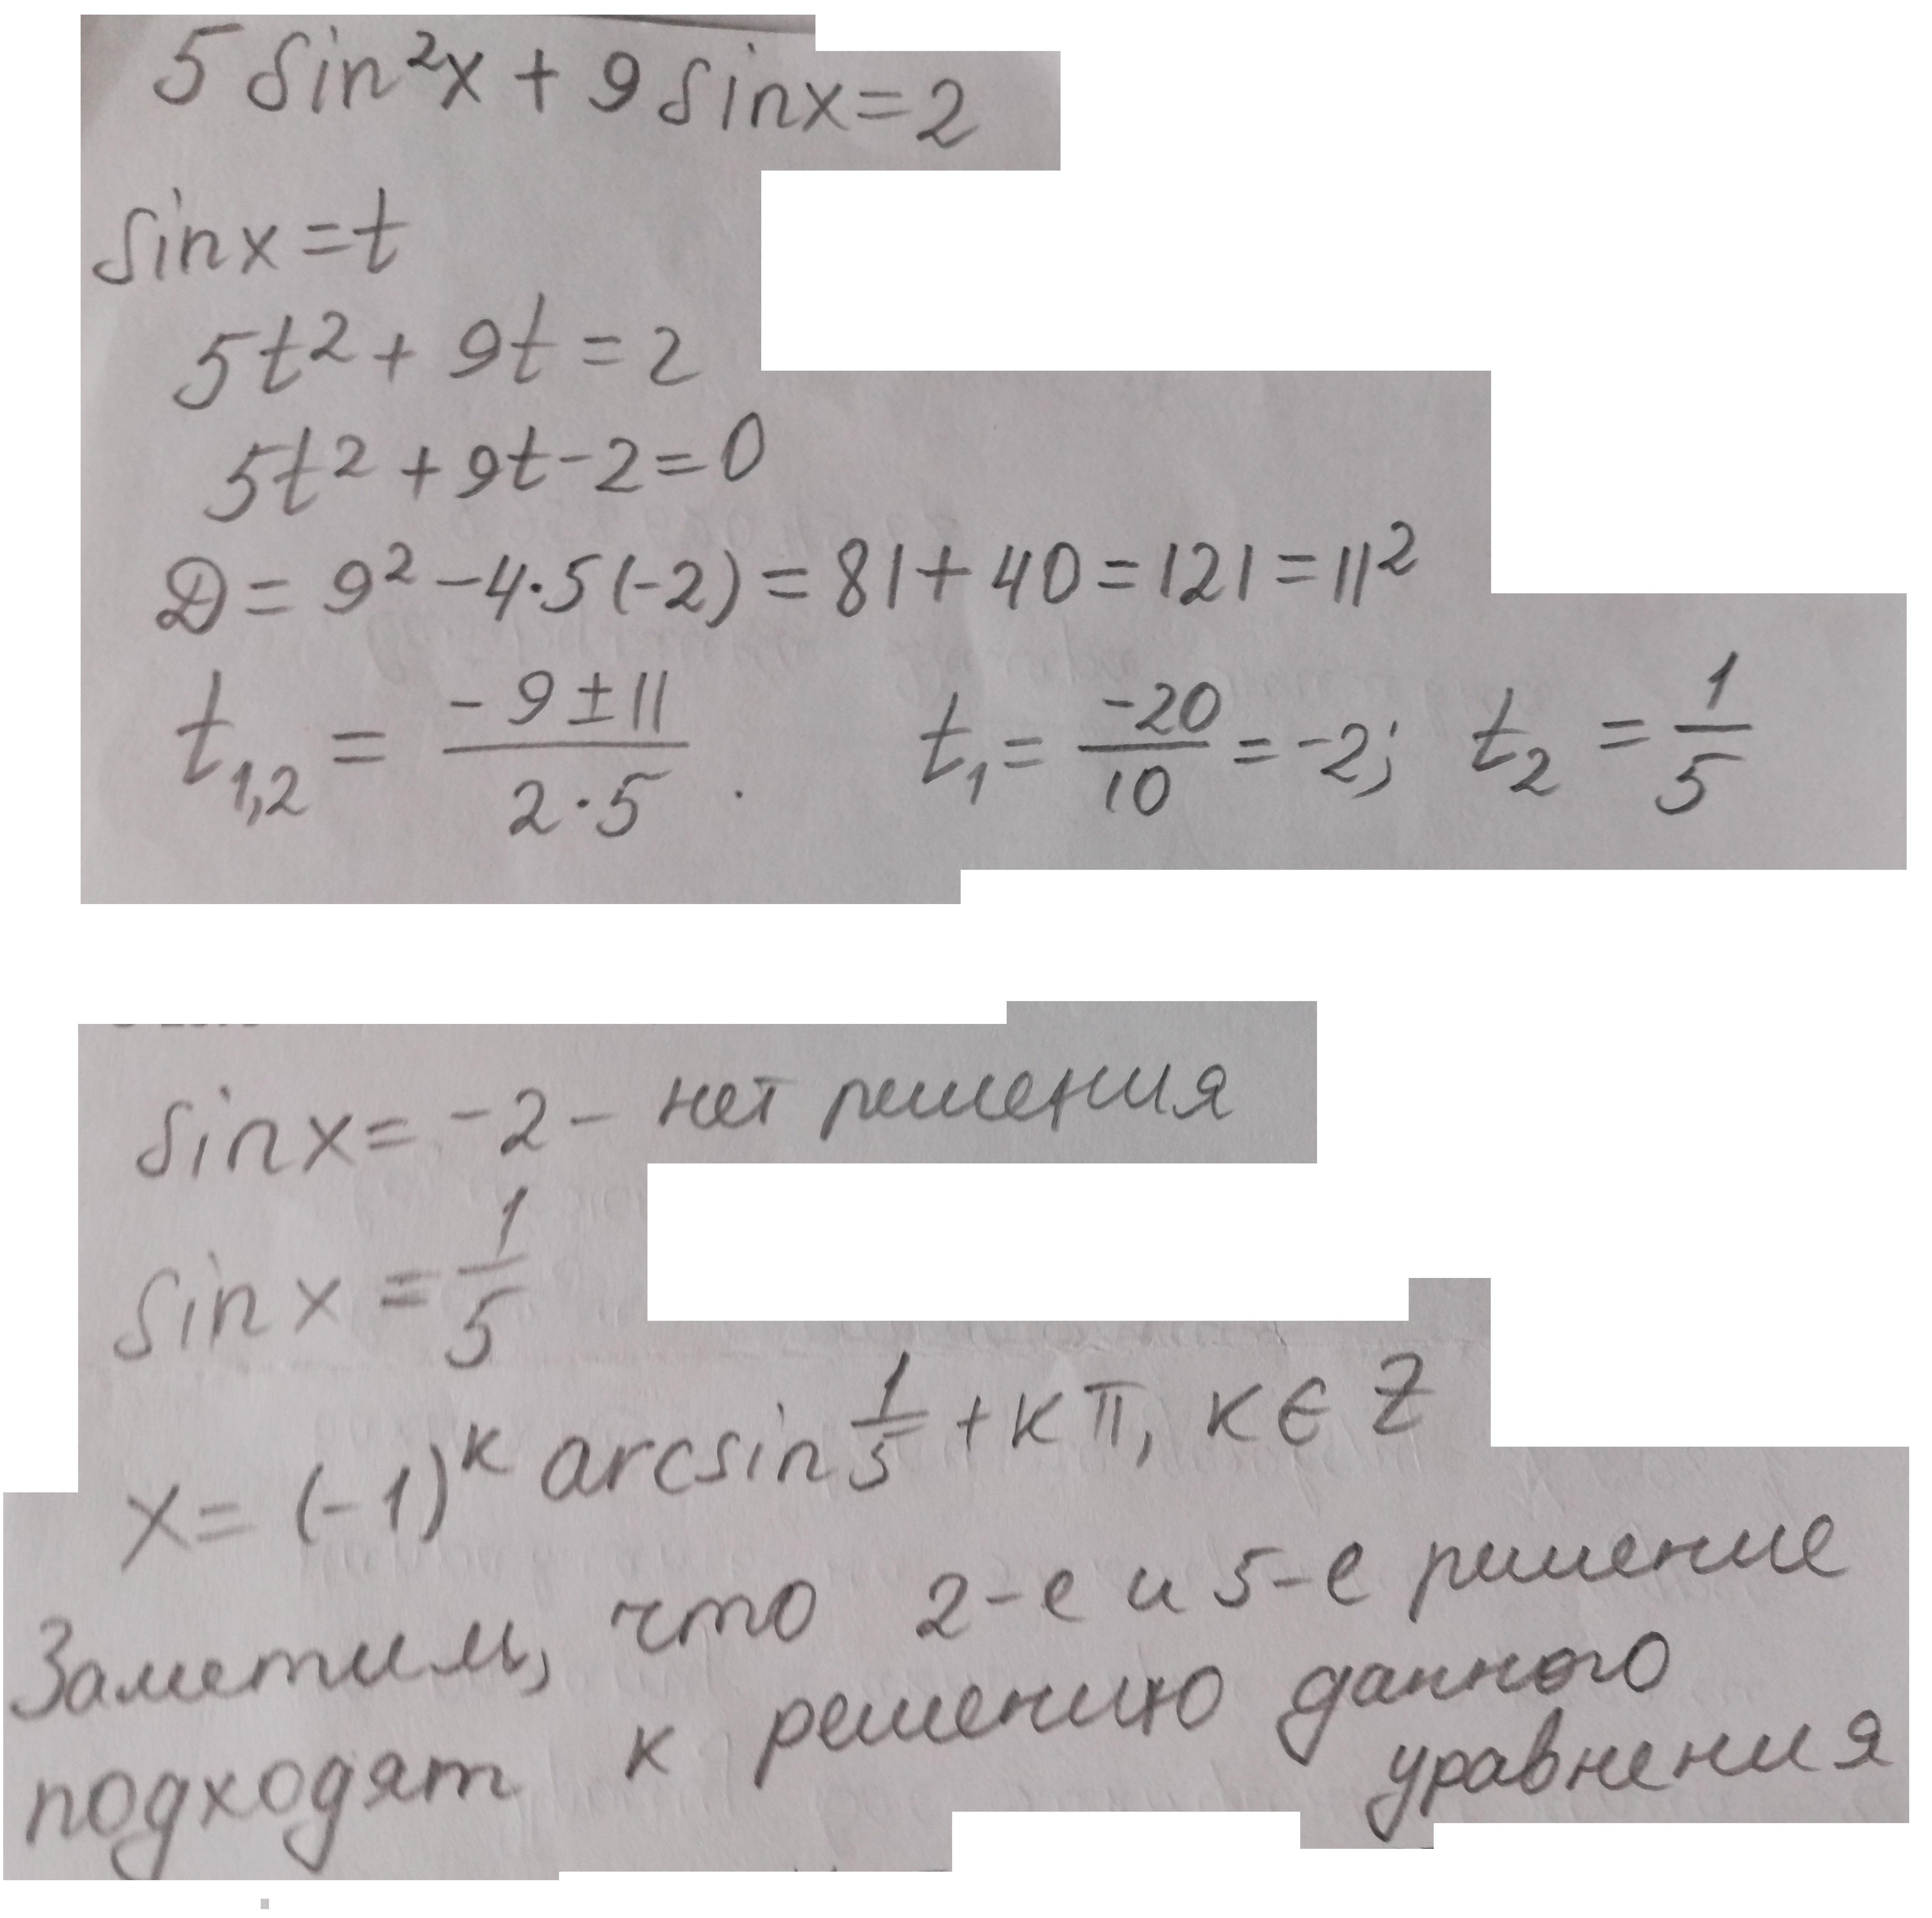 5 sin²x + 9 sinx = 2
sinx = t
5t² + 9t = 2
5t² + 9t - 2 = 0
D = 9² - 4·5(-2) = 81 + 40 = 121 = 11²
t₁,₂ = (-9 ± 11)/(2·5) . t₁ = -20/10 = -2; t₂ = 1/5
sinx = -2 - нет решения
sin x = 1/5
x = (-1)ᵏ arcsin 1/5 + кπ, к ∈ Z
Заметим, что 2-е и 5-е решение
подходят к решению данного
уравнения